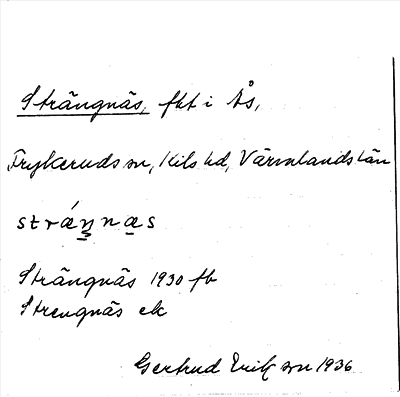 Strängnäs, fkt i Ås,
Frykeruds sn, Kils hd, Värmlands län
strǽŋnæs
Strängnäs 1930 fb
Strengnäs ek
Gertrud Erikson 1936